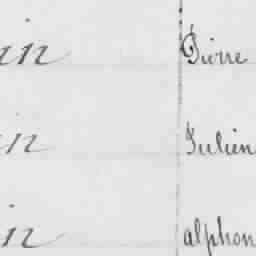 in Pierre
in Julien
in alphon